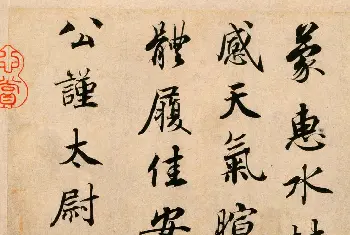 蒙惠水
感天氣暄
體履佳安
公謹太尉